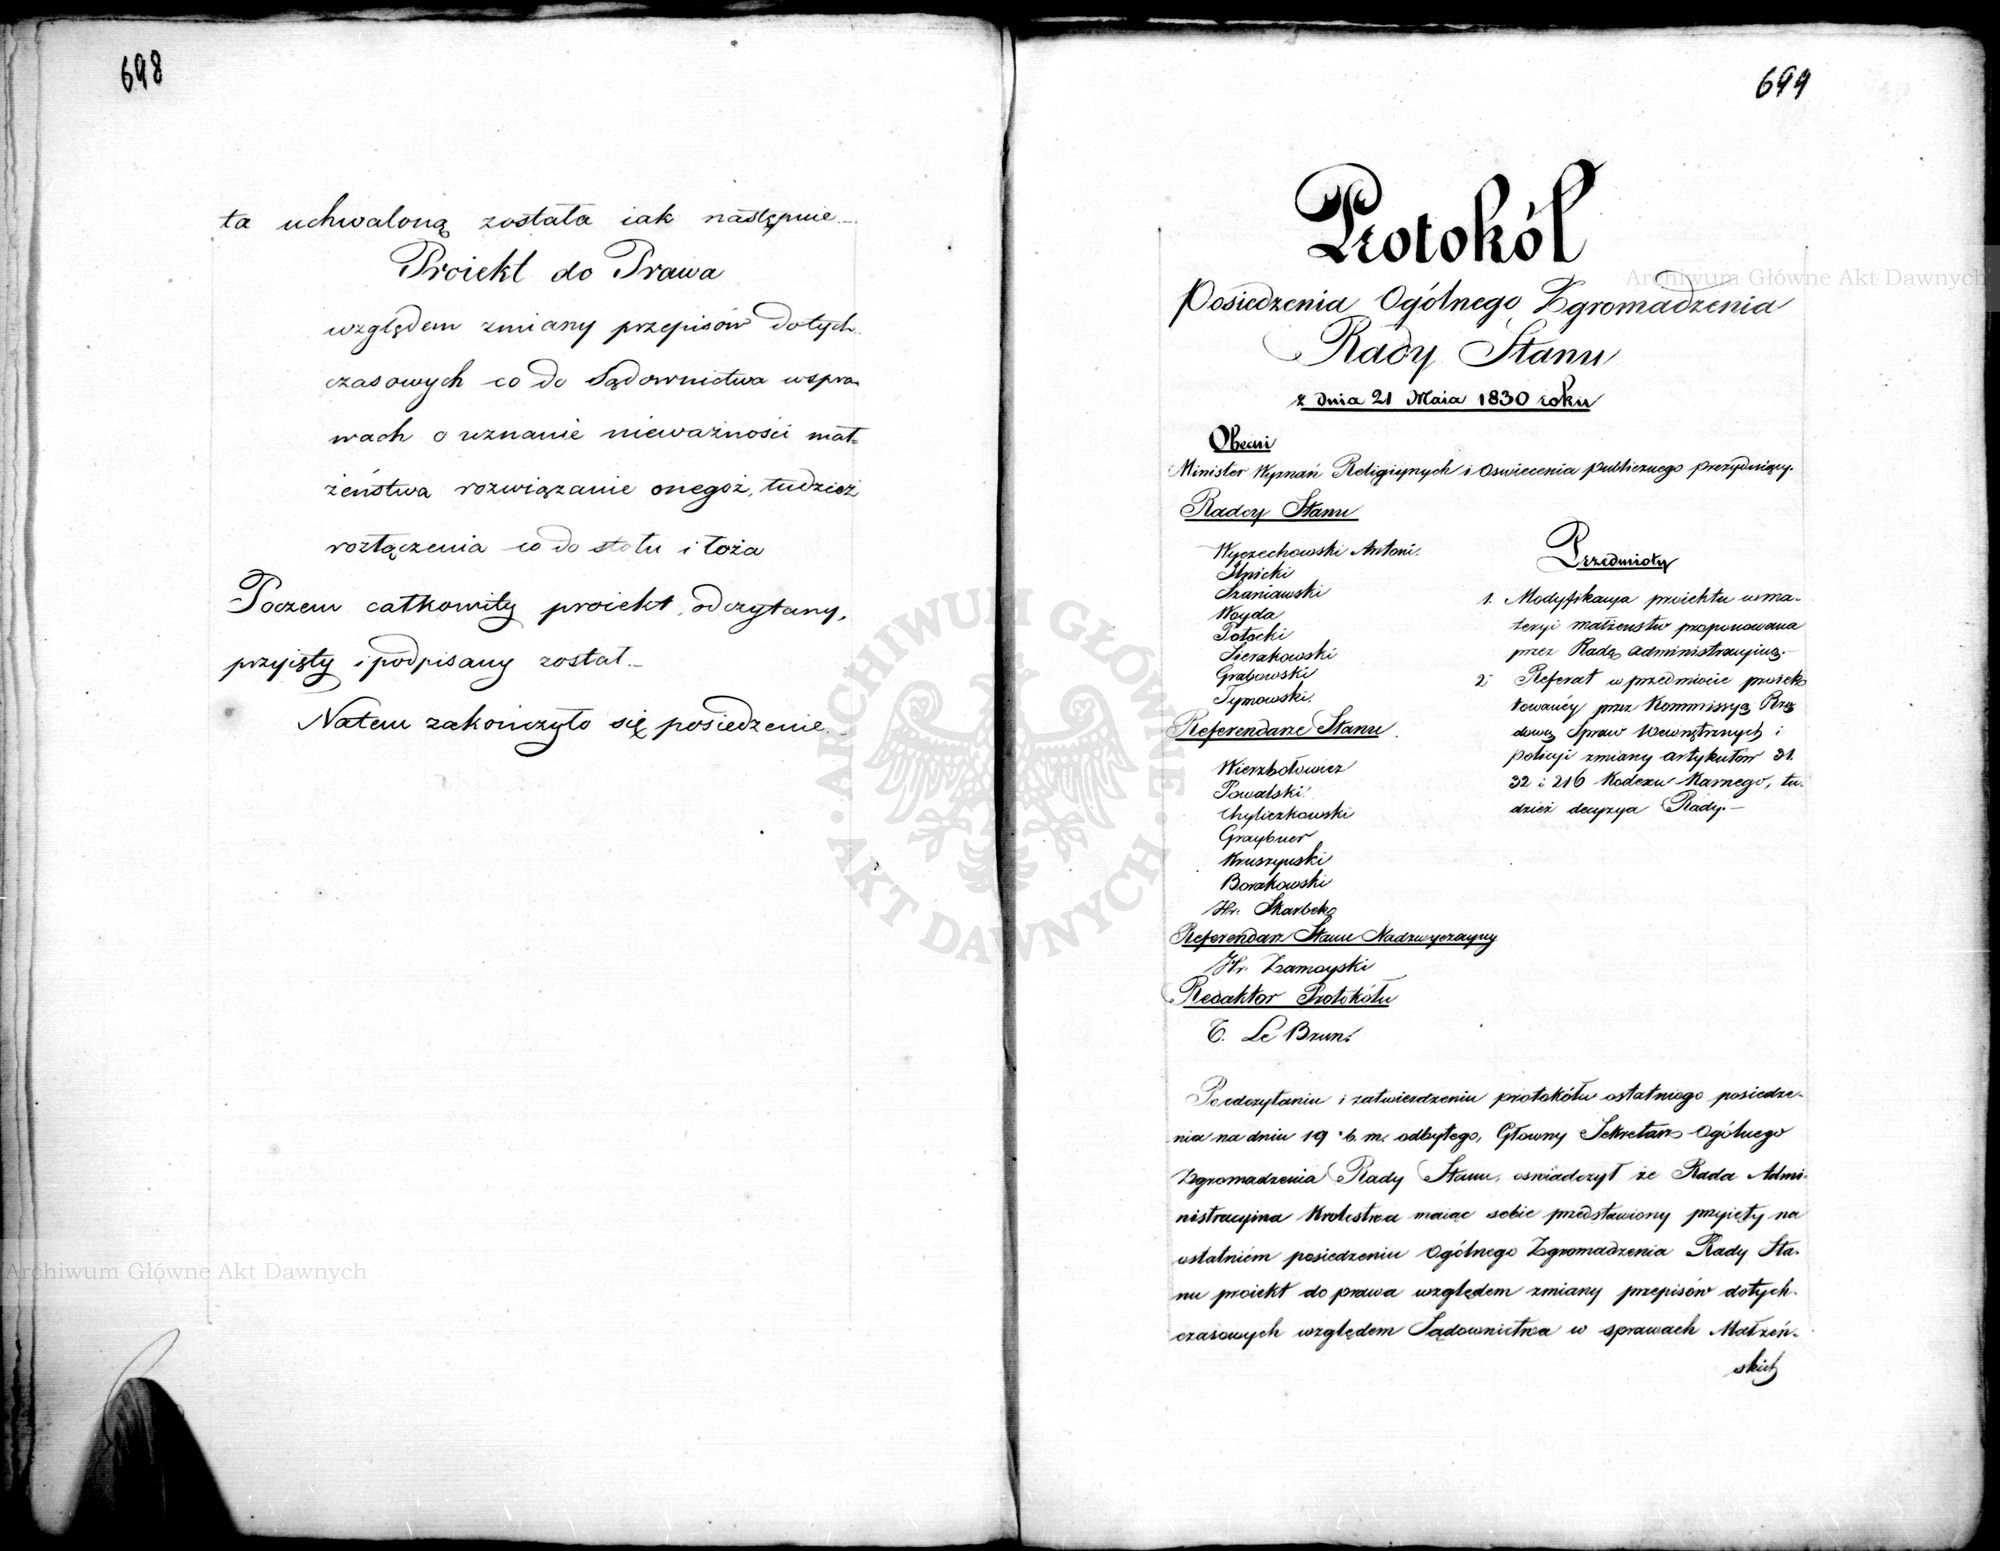 698
ta uchwaloną została iak następuie.
Proiekt do Prawa
względem zmiany przepisów dotych-
czasowych co do Sądownictwa w spra-
wach o uznanie nieważności mał-
żeństwa rozwiązanie onegoż, tudzież
rozłączenia co do stołu i łoża
Poczem całkowity proiekt, odczytany,
przyięty i podpisany został.
Natem zakończyło się posiedzenie.
699
Protokół
Posiedzenia Ogólnego Zgromadzenia
Rady Stanu
z dnia 21 Maia 1830 roku
Obecni
Minister Wyznań Religiynych i Oswiecenia publicznego prezyduiący.
Radcy Stanu
Wyczechowski Antoni.
Ilnicki
Szaniawski
Woyda
Potocki
Sierakowski
Grabowski
Tymowski.
Referendarze Stanu
Wierzbołowicz
Powalski
Chyliczkowski
Graybner
Kruszyński
Borakowski
Hr. Skarbek
Referendarz Stanu Nadzwyczayny
Hr. Zamoyski
Redaktor Protokółu
T. Le Brun.
Przedmioty
1. Modyfikacya proiektu w ma-
teryi małżeństw proponowana
przez Radę administracyiną.
2. Referat w przedmiocie proiek
towanéy przez Kommissyę Rzą
dową Spraw Wewnętrznych i
Policyi zmiany artykułów 31.
32 i 216 Kodexu Karnego, tu-
dzież decyzya Rady.
Po odczytaniu i zatwierdzeniu protokółu ostatniego posiedze-
nia na dniu 19 b. m. odbytego, Głowny Sekretarz Ogólnego
Zgromadzenia Rady Stanu, oswiadczył że Rada Admi-
nistracyina Krolestwa maiąc sobie przedstawiony przyięty na
ostatniém posiedzeniu Ogólnego Zgromadzenia Rady Sta-
nu proiekt do prawa względem zmiany przepisów dotych-
czasowych względem Sądownictwa w sprawach Małżeń-
skich
Archiwum Główne Akt Dawnych
Archiwum Główne Akt Dawnych
ARCHIWUM GŁÓWNE · AKT DAWNYCH ·